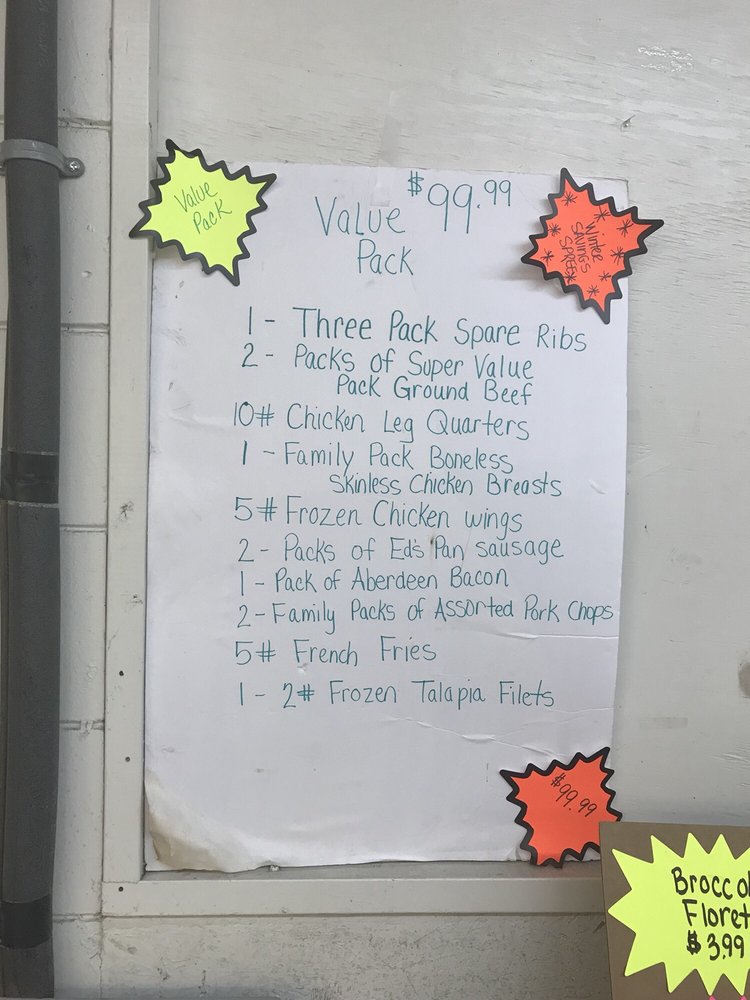 Value
Pack
$99.99
Value
Pack
Winter
SAVINGS
SPREE
1 - Three Pack Spare Ribs
2 - Packs of Super Value
Pack Ground Beef
10# Chicken Leg Quarters
1 - Family Pack Boneless
Skinless Chicken Breasts
5# Frozen Chicken wings
2 - Packs of Ed's Pan sausage
1 - Pack of Aberdeen Bacon
2 - Family Packs of Assorted Pork Chops
5# French Fries
1 - 2# Frozen Talapia Filets
$99.99
Broccol
Floret
$3.99